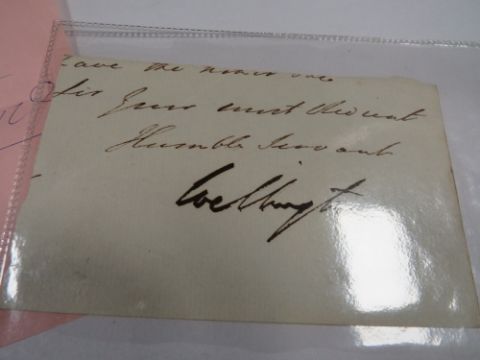 have the honor
Sir Your most Obedient
Humble Servant
Wellington